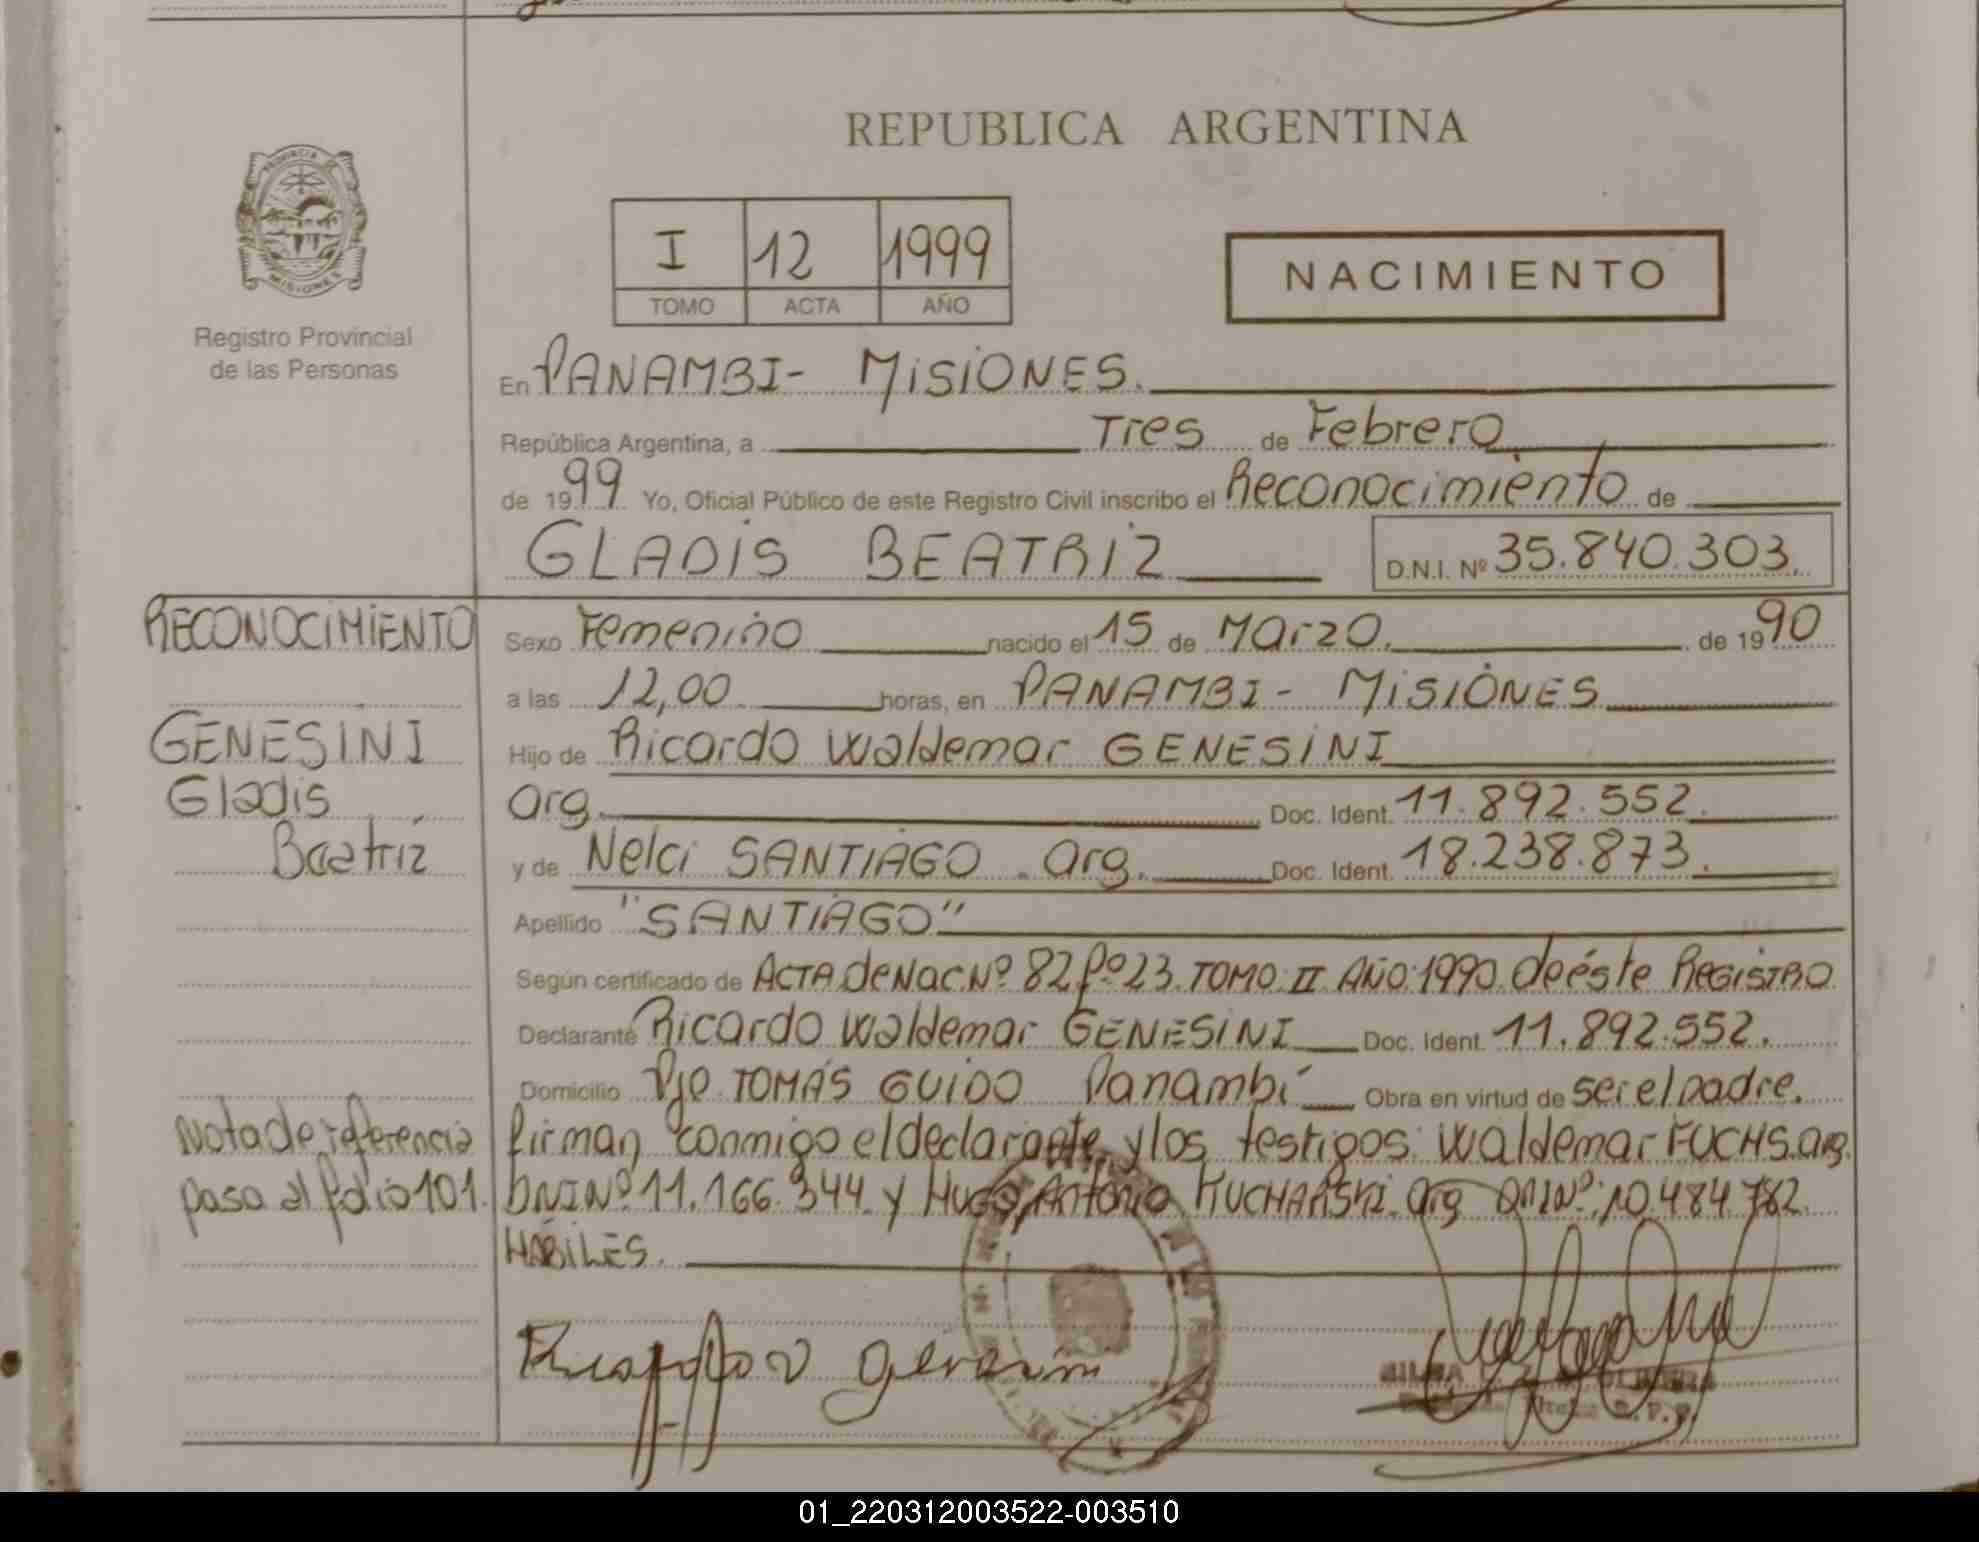 REPUBLICA ARGENTINA
PROVINCIA DE
MISIONES
Registro Provincial
de las Personas
I 12 1999
TOMO ACTA AÑO
NACIMIENTO
En PANAMBI- MiSiONES.
República Argentina, a Tres de Febrero
de 1999 Yo, Oficial Público de este Registro Civil inscribo el Reconocimiento de
GLADIS BEATRIZ D.N.I. Nº 35.840.303.
RECONOCIMIENTO
GENESINI
Gladis
Beatriz
Sexo Femenino nacido el 15 de Marzo. de 1990
a las 12,00 horas, en PANAMBI- MISIONES
Hijo de Ricardo Waldemar GENESINI
Arg. Doc. Ident. 11.892.552.
y de Nelci SANTIAGO. Arg. Doc. Ident. 18.238.873.
Apellido "SANTIAGO"
Según certificado de ACTA de Nac. Nº 82 fº 23. TOMO II AÑO 1990 de éste REGISTRO
Declarante Ricardo Waldemar GENESINI Doc. Ident. 11.892.552.
Domicilio Pje. TOMÁS GUIDO Panambí Obra en virtud de ser el padre.
Nota de referencia
pasa al folio 101.
firman conmigo el declarante y los testigos: Waldemar FUCHS. arg.
DNI Nº 11.166.344 y Hugo Antonio KUCHARSKI. arg DNI Nº: 10.484.782.
HÁBILES.
R.P.P.
01_220312003522-003510